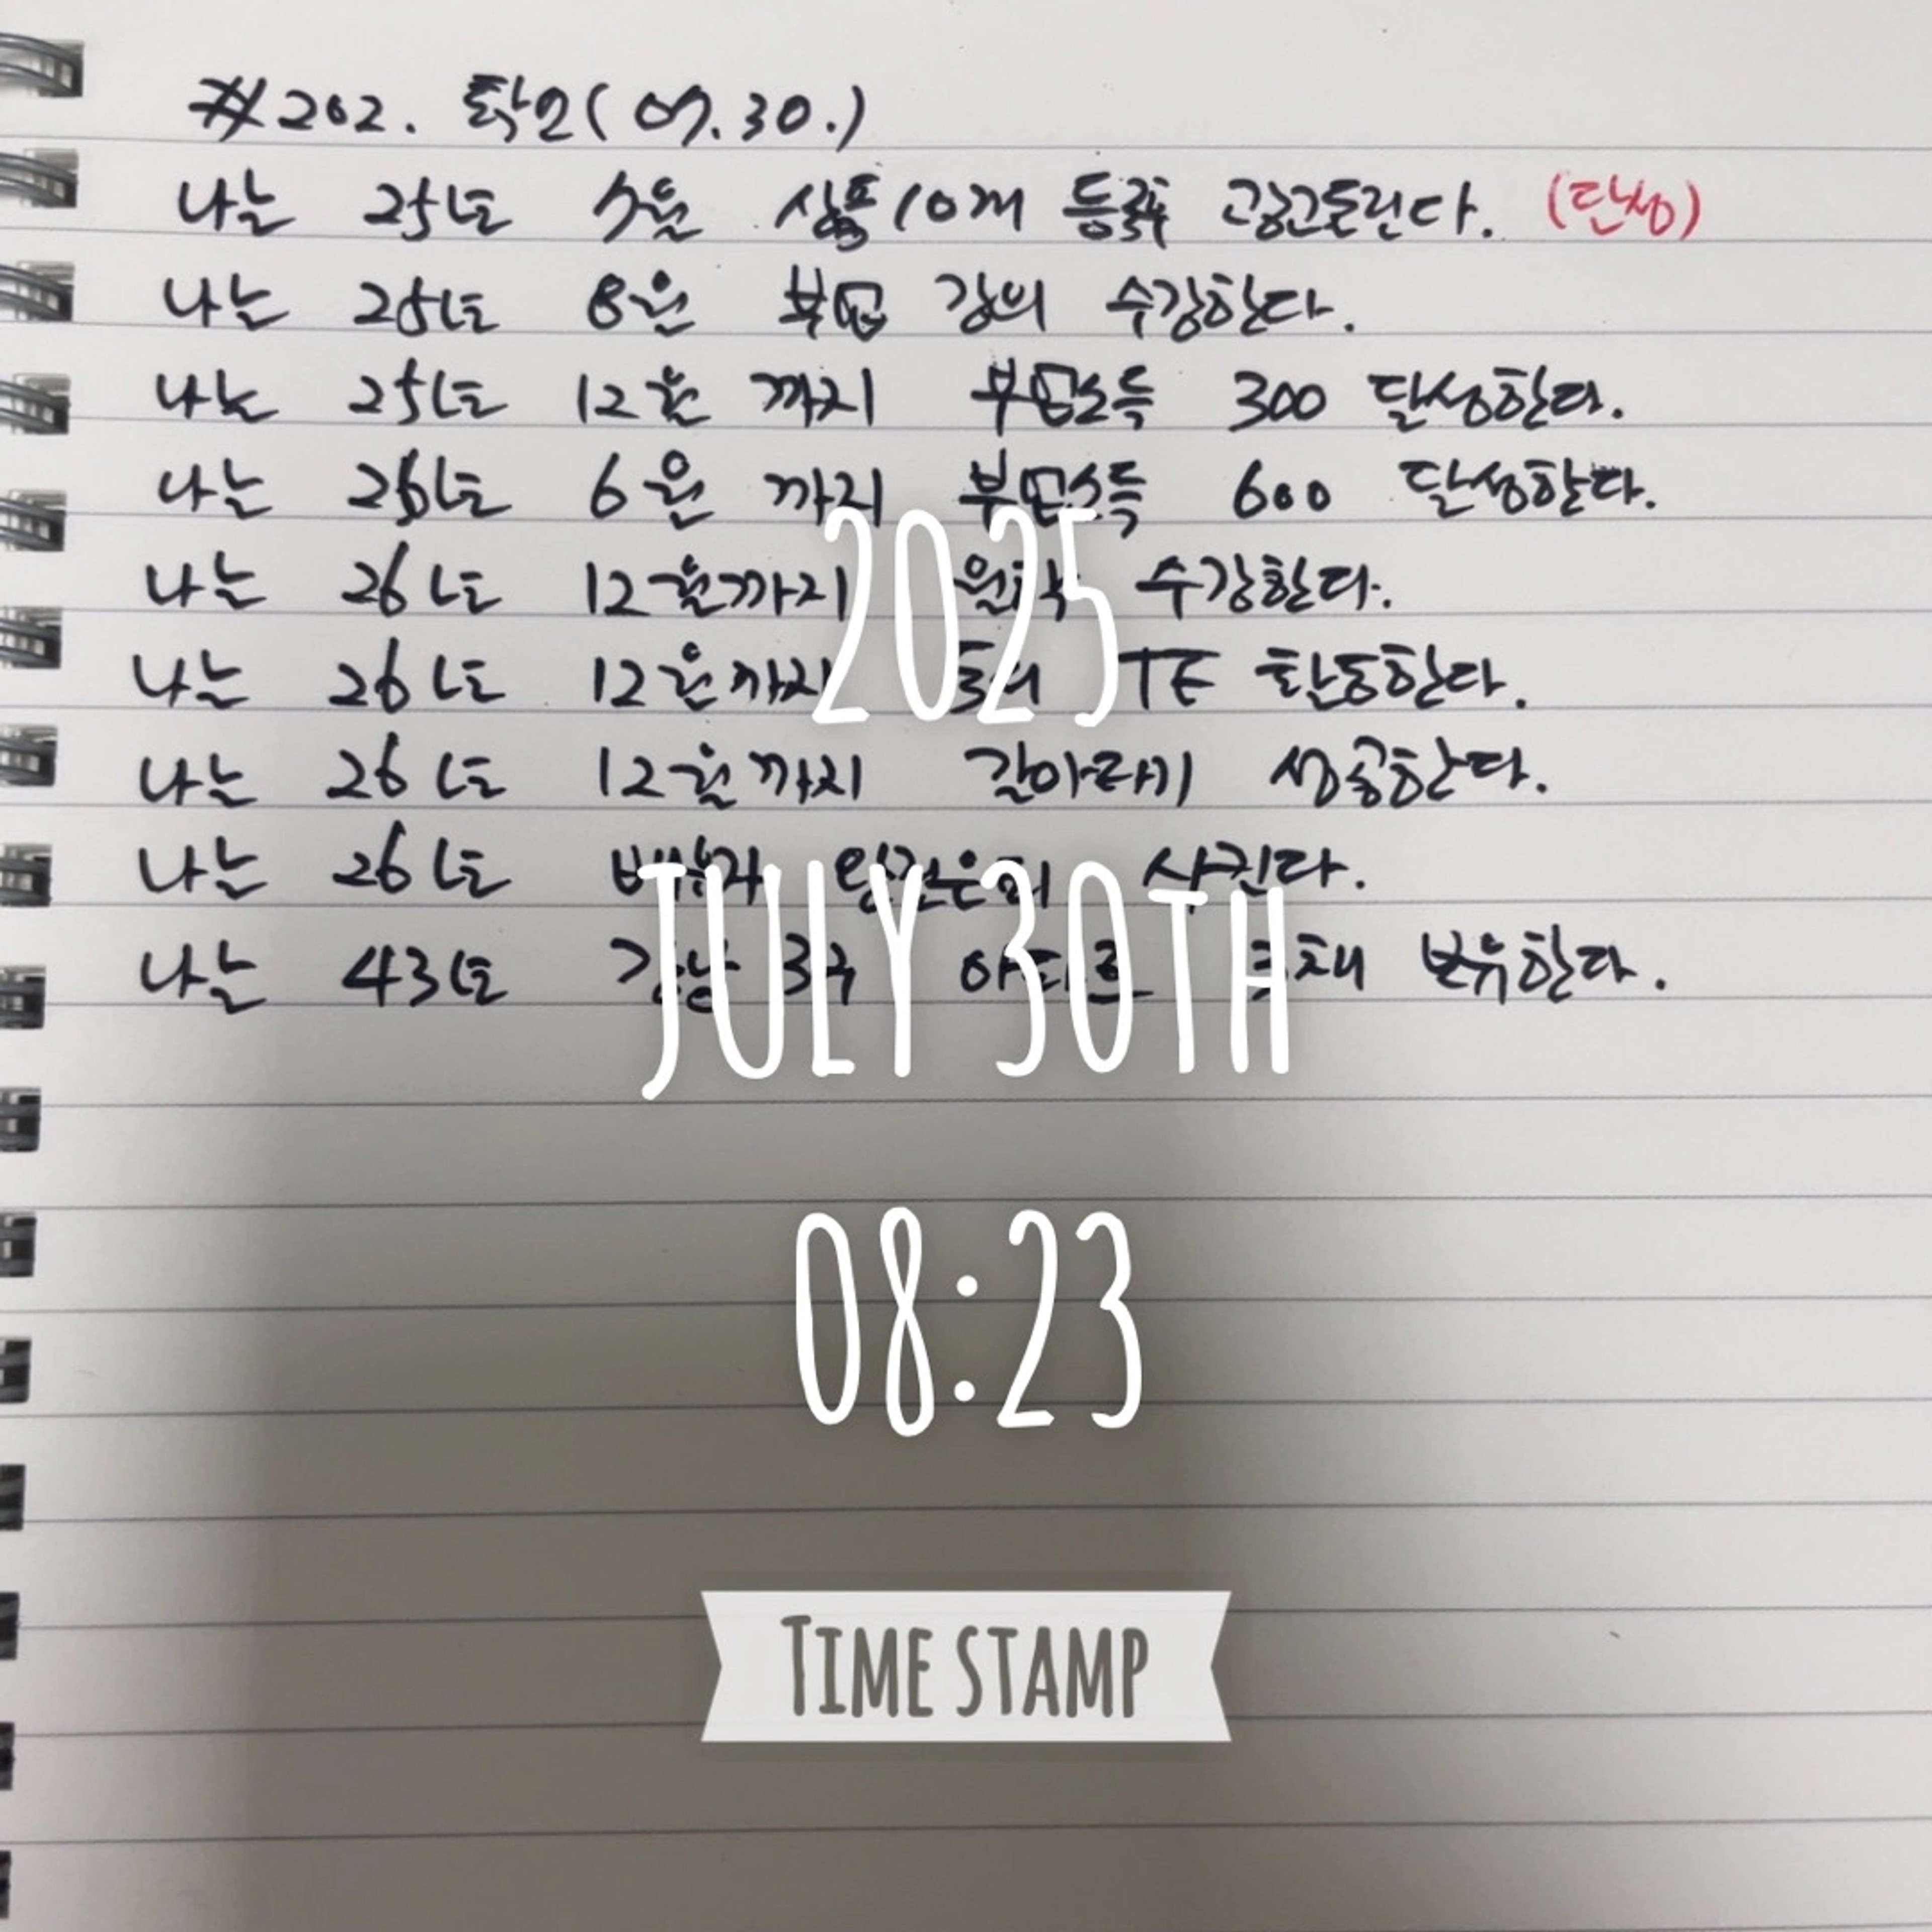 #202. 확언(07.30.)
나는 25년 7월 상품 10개 등록 광고돌린다. (달성)
나는 25년 8월 부업 강의 수강한다.
나는 25년 12월 까지 부업소득 300 달성한다.
나는 26년 6월 까지 부업소득 600 달성한다.
나는 26년 12월까지 수강한다.
나는 26년 12월까지 TF 활동한다.
나는 26년 12월까지 갈아타기 성공한다.
나는 26년 시킨다.
나는 43년 강남 3구 아파트 보유한다.
2025
JULY 30TH
08:23
TIME STAMP